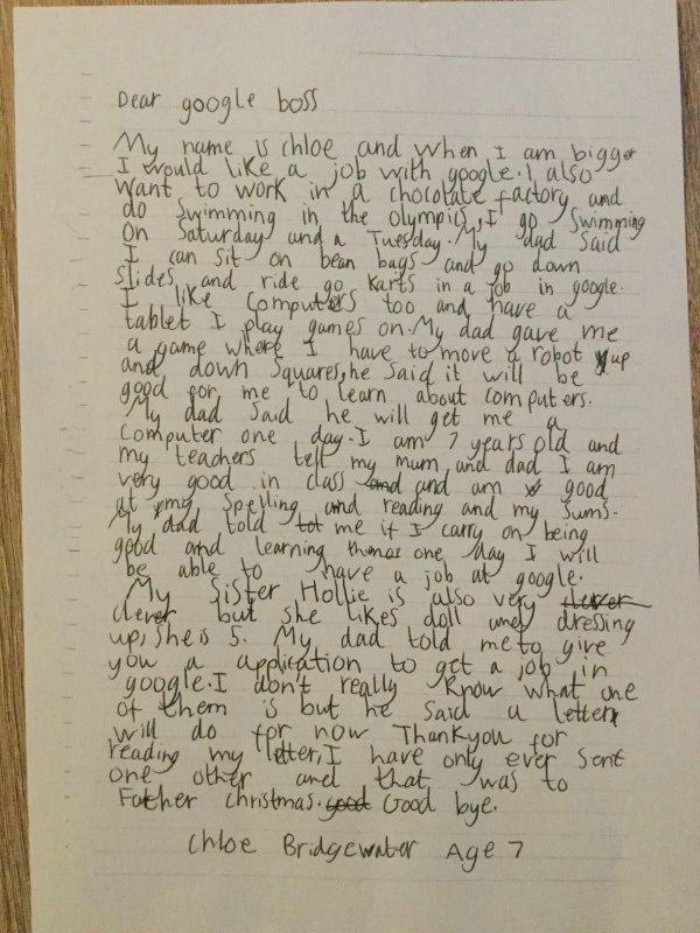 Dear google boss
My name is Chloe and when I am bigger
I would like a job with google. I also
want to work in a chocolate factory and
do swimming in the olympics, I go Swimming
on Saturday and a Tuesday. My dad said
I can sit on bean bags and go down
slides and ride go karts in a job in google.
I like computers too and have a
tablet I play games on. My dad gave me
a game where I have to move a robot up
and down squares, he said it will be
good for me to learn about computers.
My dad said he will get me a
computer one day. I am 7 years old and
my teachers tell my mum and dad I am
very good in class and and am good
at my spelling and reading and my sums.
My dad told me if I carry on being
good and learning one day I will
be able to have a job at google.
My Sister Hollie is also very clever
clever but she likes doll and dressing
up, she is 5. My dad told me to give
you a application to get a job in
google. I don't really know what one
of them is but he said a letter
will do for now Thankyou for
reading my letter, I have only ever sent
one other and that was to
Father christmas. good Good bye.
Chloe Bridgewater Age 7